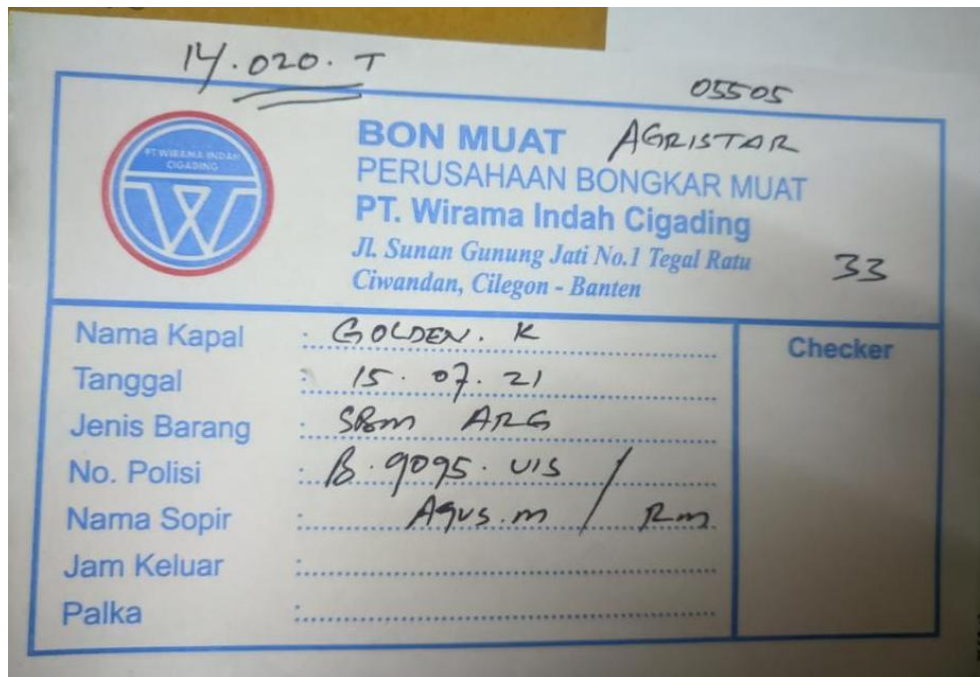 14.020.T
05505
PT WIRAMA INDAH
CIGADING
BON MUAT AGRISTAR
PERUSAHAAN BONGKAR MUAT
PT. Wirama Indah Cigading
Jl. Sunan Gunung Jati No.1 Tegal Ratu
Ciwandan, Cilegon - Banten
33
Nama Kapal : GOLDEN. K
Checker
Tanggal : 15.07.21
Jenis Barang : SBM ARG
No. Polisi : B.9095.UIS /
Nama Sopir : Agus.m / Rm
Jam Keluar :
Palka :